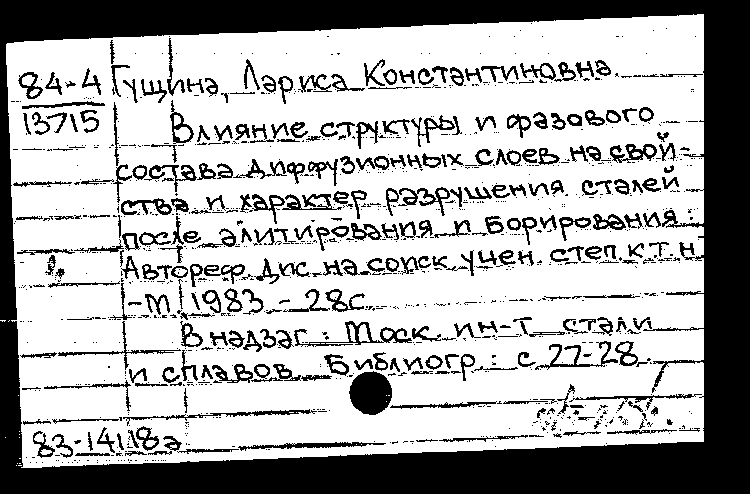 84-4 Гущина, Лариса Константиновна.
13715
Влияние структуры и фазового
состава диффузионных слоев на свой-
ства и характер разрушения сталей
после алитирования и борирования:
Автореф. дис. на соиск. учен. степ. к.т.н.
-М., 1983. - 28с.
В надзаг.: Моск. ин-т стали
и сплавов. Библиогр.: с.27-28.
83-14118а